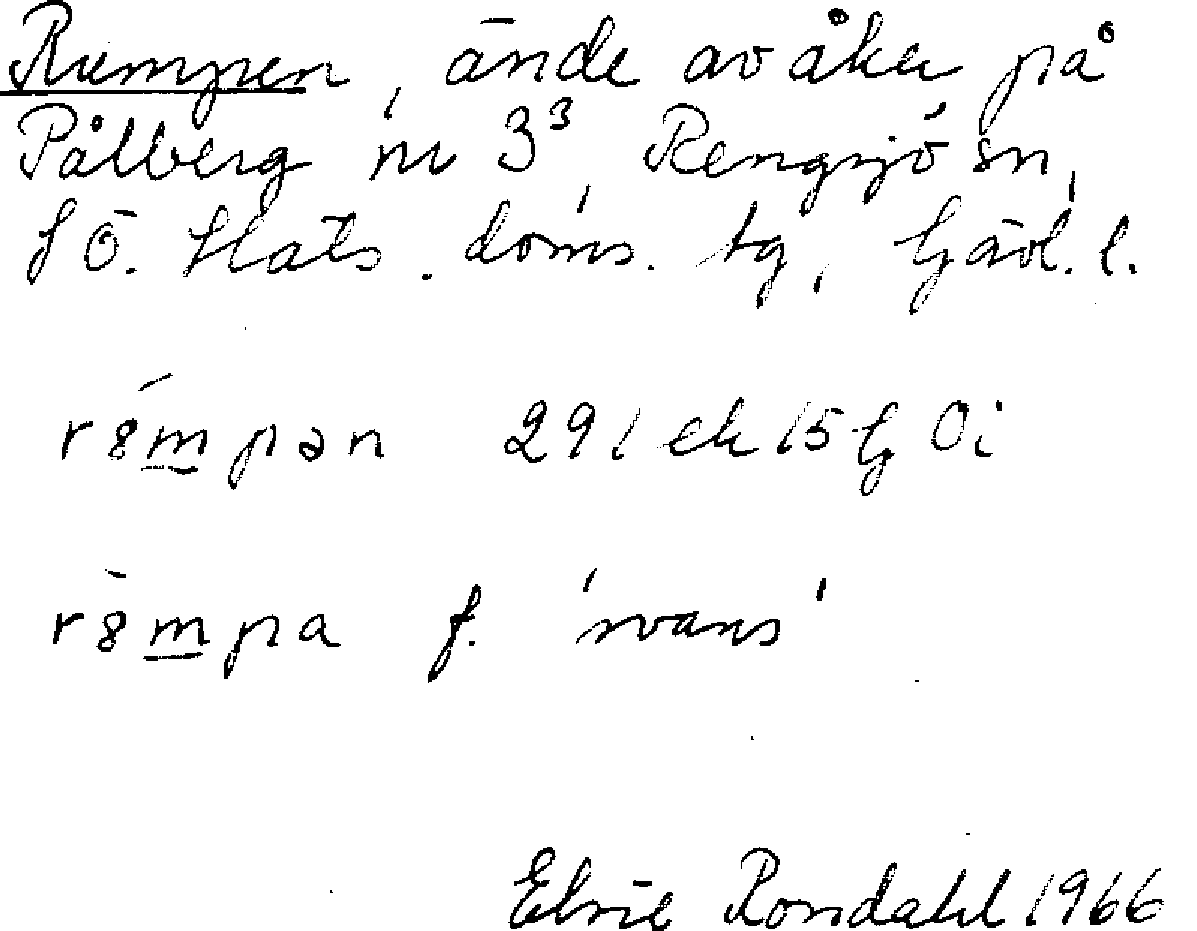 Rumpen, ände av åker på
Pålberg nr 3³, Rengsjö sn,
S Ö. Häls. doms. tg, Gävl. l.
r8mpən 291 ek 15 G Oi
r8mpa f. 'svans'
Elsie Rondahl 1966